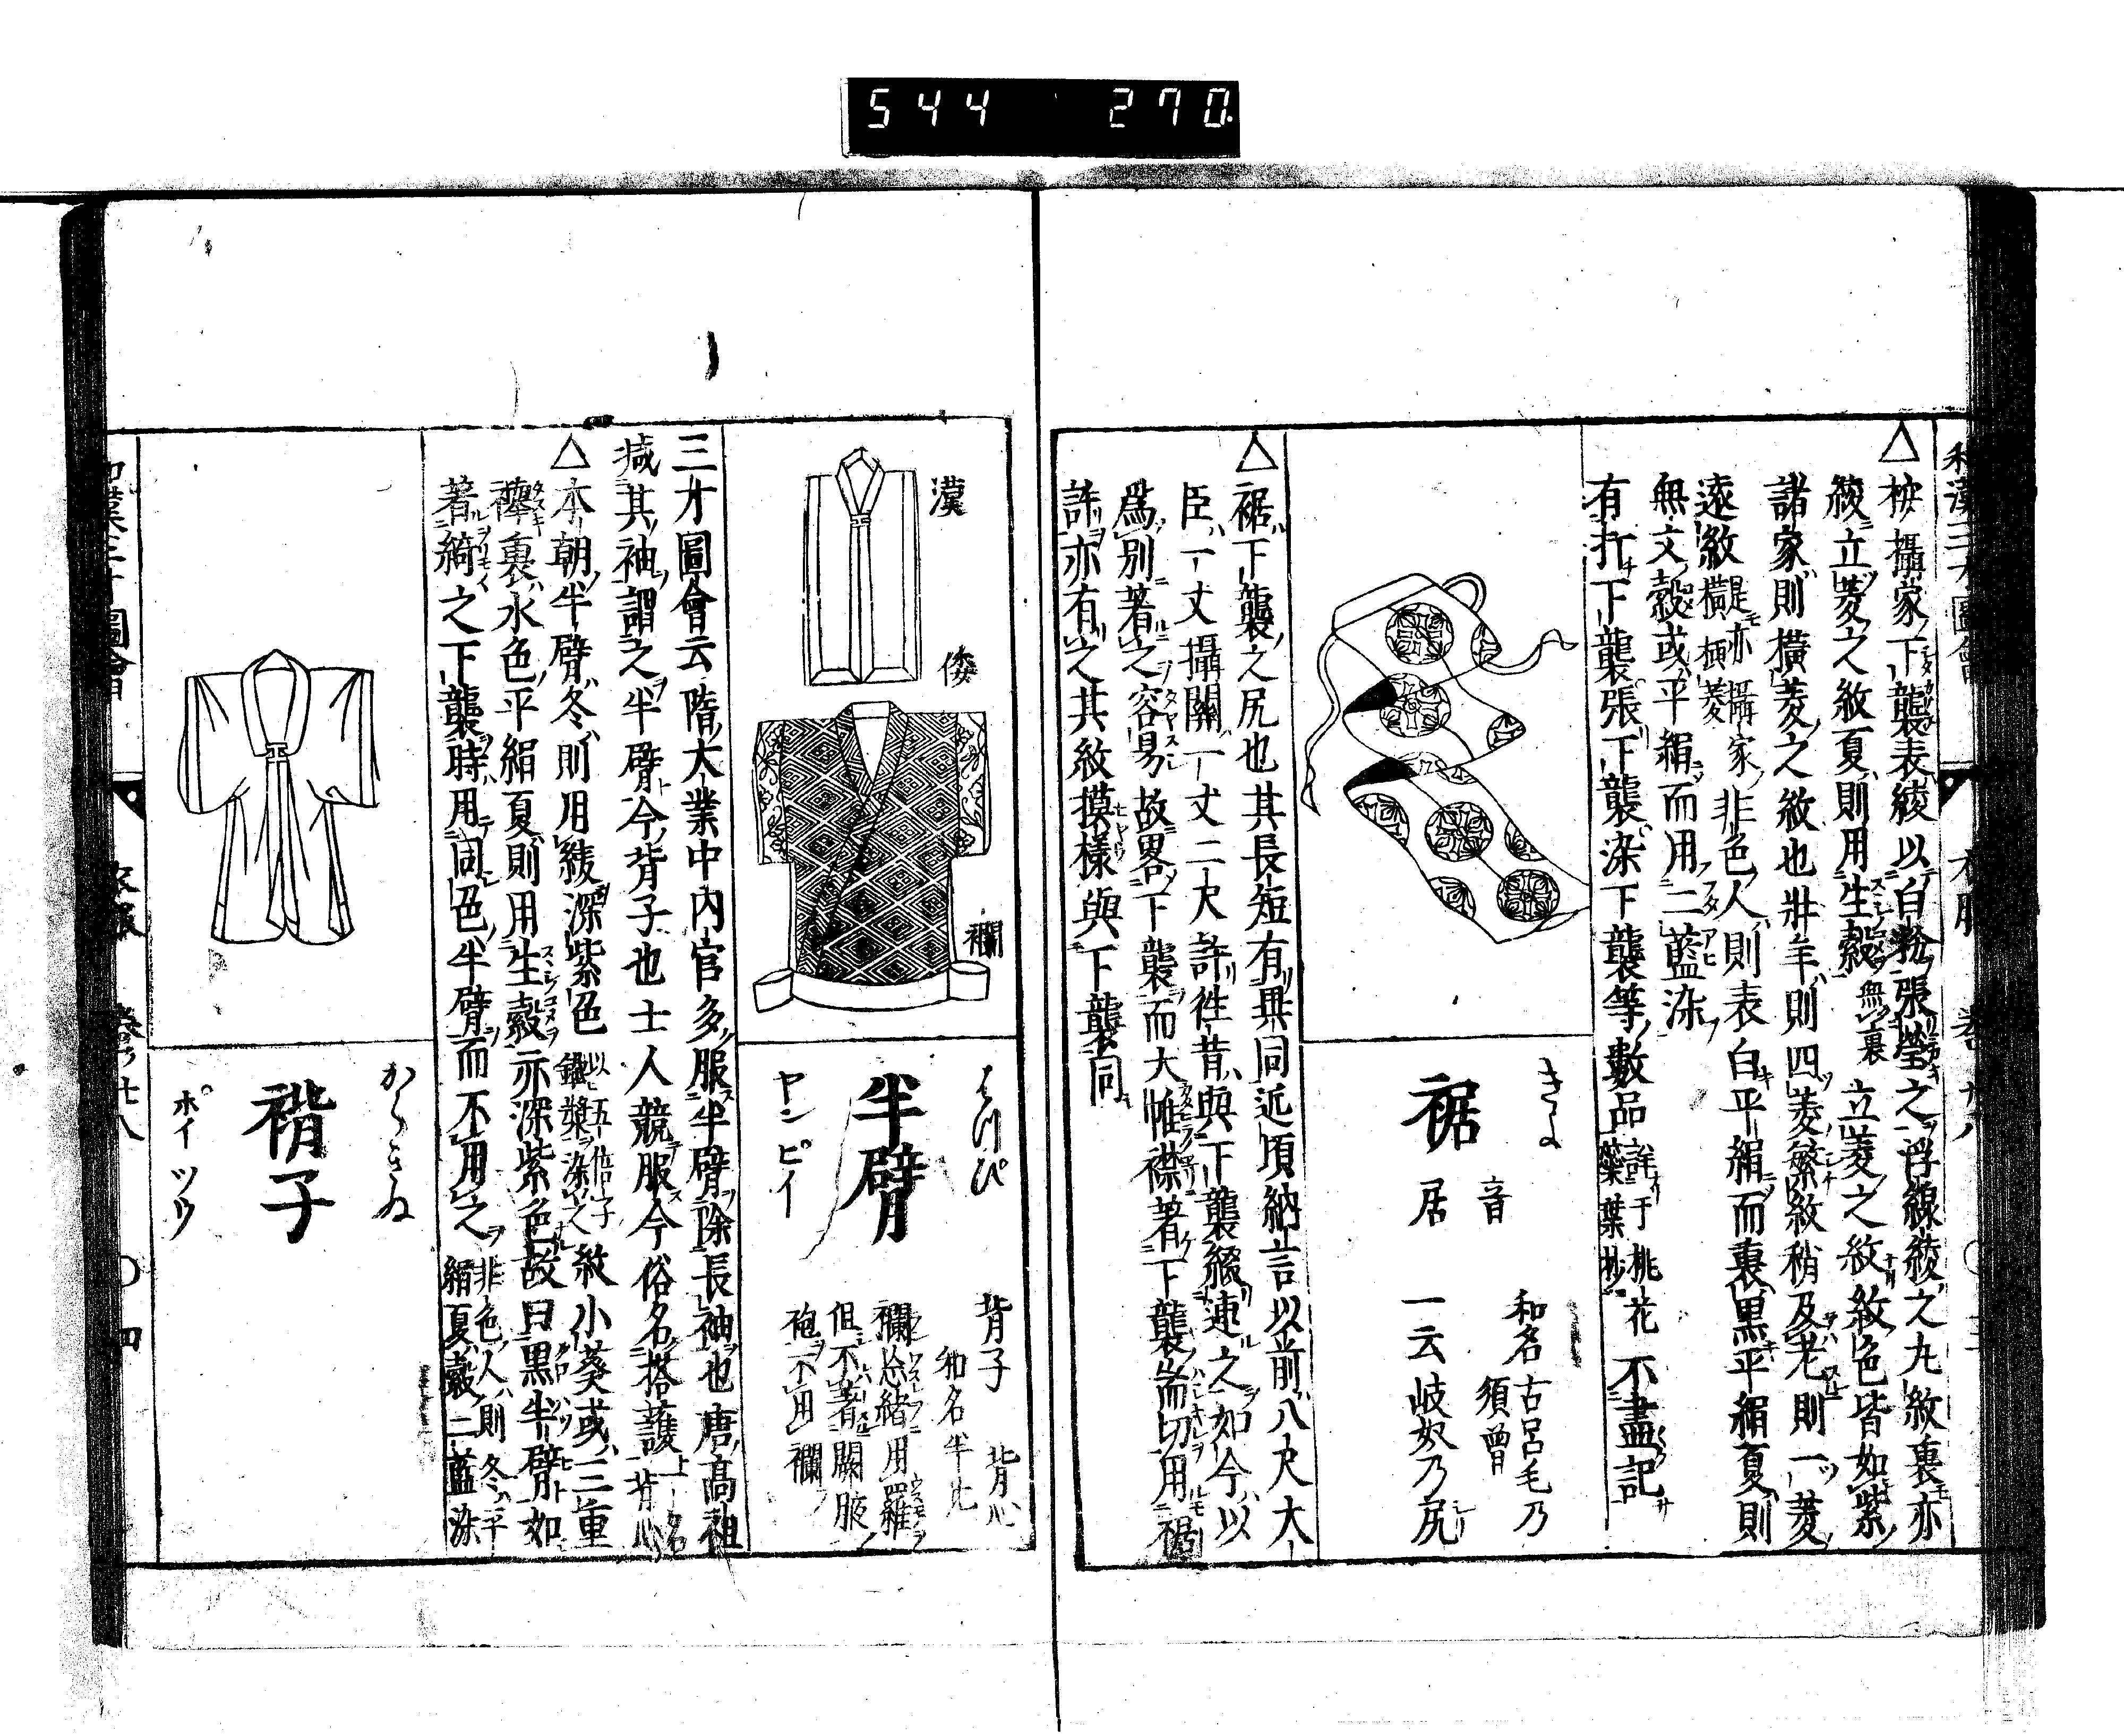 544 270
和漢三才圖會
衣服 卷ノ廿八 〇 三
△按攝家ノ下襲表綾以白粉張瑩之浮線綾之丸紋裏亦
綾立菱之紋夏則用生縠無裏立菱之紋紋色皆如紫
諸家則横菱之紋也壯年則四菱繁紋稍及老則一菱
遠紋是亦攝家ノ非色人則表白平絹而裏黒平絹夏則
横菱
無文縠或平絹而用二藍染
有打下襲張下襲染下襲等數品詳于桃花
蘂葉抄
不盡記
きよ
裾
音
居
和名古呂毛乃
須曽
一云岐奴乃尻
△裾下襲之尻也其長短有異同近頃納言以前八尺大
臣一丈攝關一丈二尺許徃昔與下襲綴連之如今以
爲別著之容易故畧下襲而大帷襟著下襲
許亦有之其紋摸樣與下襲同
漢
倭
襴
はつぴ
半臂
ヤンピイ
背子 背心
和名半比
襴忘緒用羅
但不著闕腋
袍不用襴
三才圖會云隋大業中内官多服半臂除長袖也唐髙祖
減其袖謂之半臂今背子也士人競服今俗名搭護一名
背心
△本朝半臂冬則用綾深紫色以五倍子
鐵漿染之紋小葵或三重
襷裏水色平絹夏則用生縠亦深紫色故曰黒半臂如
著綺之下襲時用同色半臂而不用之非色人則冬平
絹夏縠二藍染
からきぬ
褙子
ポイツウ
和漢三才圖會
衣服 卷ノ廿八 〇 四